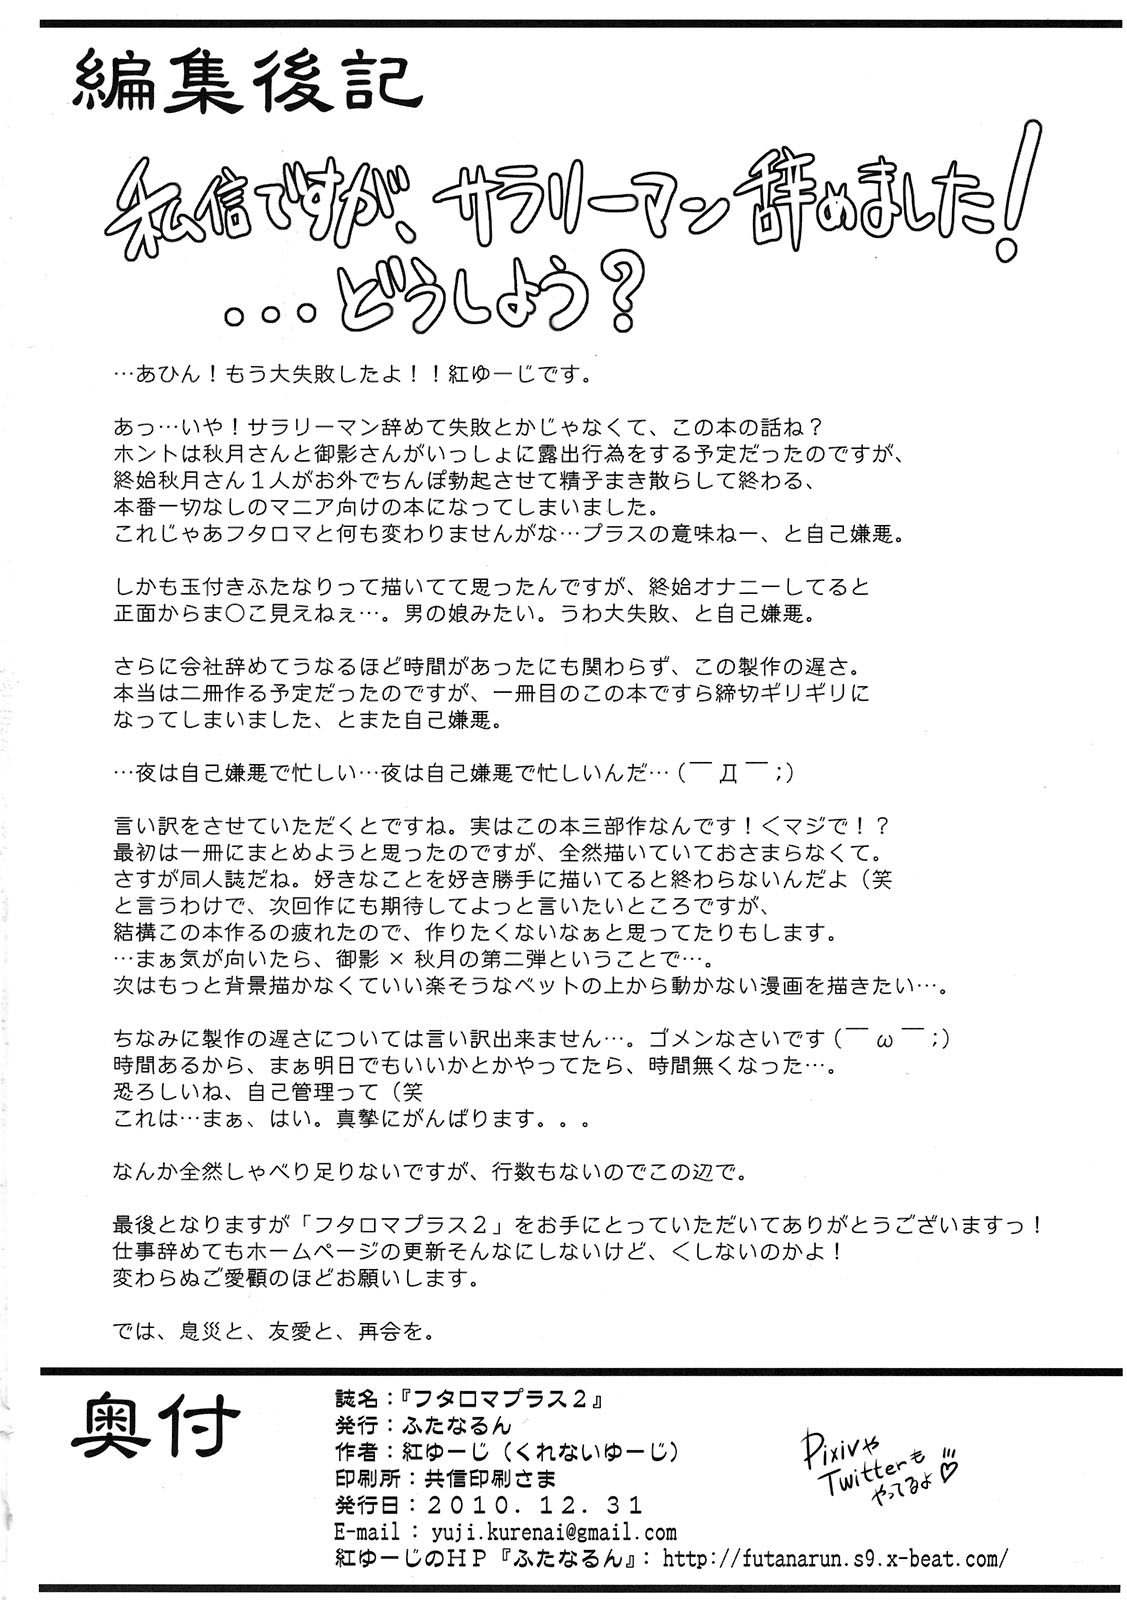 編集後記
私信ですが、サラリーマン辞めました！
...どうしよう？
…あひん！もう大失敗したよ！！紅ゆーじです。
あっ…いや！サラリーマン辞めて失敗とかじゃなくて、この本の話ね？
ホントは秋月さんと御影さんがいっしょに露出行為をする予定だったのですが、
終始秋月さん１人がお外でちんぽ勃起させて精子まき散らして終わる、
本番一切なしのマニア向けの本になってしまいました。
これじゃあフタロマと何も変わりませんがな…プラスの意味ねー、と自己嫌悪。
しかも玉付きふたなりって描いてて思ったんですが、終始オナニーしてると
正面からま〇こ見えねぇ…。男の娘みたい。うわ大失敗、と自己嫌悪。
さらに会社辞めてうなるほど時間があったにも関わらず、この製作の遅さ。
本当は二冊作る予定だったのですが、一冊目のこの本ですら締切ギリギリに
なってしまいました、とまた自己嫌悪。
…夜は自己嫌悪で忙しい…夜は自己嫌悪で忙しいんだ…（￣Д￣；）
言い訳をさせていただくとですね。実はこの本三部作なんです！＜マジで！？
最初は一冊にまとめようと思ったのですが、全然描いていておさまらなくて。
さすが同人誌だね。好きなことを好き勝手に描いてると終わらないんだよ（笑
と言うわけで、次回作にも期待してよっと言いたいところですが、
結構この本作るの疲れたので、作りたくないなぁと思ってたりもします。
…まぁ気が向いたら、御影×秋月の第二弾ということで…。
次はもっと背景描かなくていい楽そうなベットの上から動かない漫画を描きたい…。
ちなみに製作の遅さについては言い訳出来ません…。ゴメンなさいです（￣ω￣；）
時間あるから、まぁ明日でもいいかとかやってたら、時間無くなった…。
恐ろしいね、自己管理って（笑
これは…まぁ、はい。真摯にがんばります。。。
なんか全然しゃべり足りないですが、行数もないのでこの辺で。
最後となりますが「フタロマプラス２」をお手にとっていただいてありがとうございますっ！
仕事辞めてもホームページの更新そんなにしないけど、＜しないのかよ！
変わらぬご愛顧のほどお願いします。
では、息災と、友愛と、再会を。
奥付
誌名：『フタロマプラス２』
発行：ふたなるん
作者：紅ゆーじ（くれないゆーじ）
印刷所：共信印刷さま
発行日：２０１０．１２．３１
E-mail : yuji.kurenai@gmail.com
紅ゆーじのＨＰ『ふたなるん』: http://futanarun.s9.x-beat.com/
Pixivや
Twitterも
やってるよ!!!♡